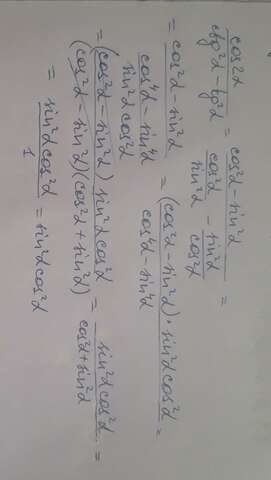 cos2α / (ctg²α - tg²α) = (cos²α - sin²α) / (cos²α/sin²α - sin²α/cos²α) =
= (cos²α - sin²α) / ((cos⁴α - sin⁴α) / (sin²α cos²α)) = ((cos²α - sin²α) · sin²α cos²α) / (cos⁴α - sin⁴α) =
= ((cos²α - sin²α) · sin²α cos²α) / ((cos²α - sin²α)(cos²α + sin²α)) = (sin²α cos²α) / (cos²α + sin²α) =
= (sin²α cos²α) / 1 = sin²α cos²α